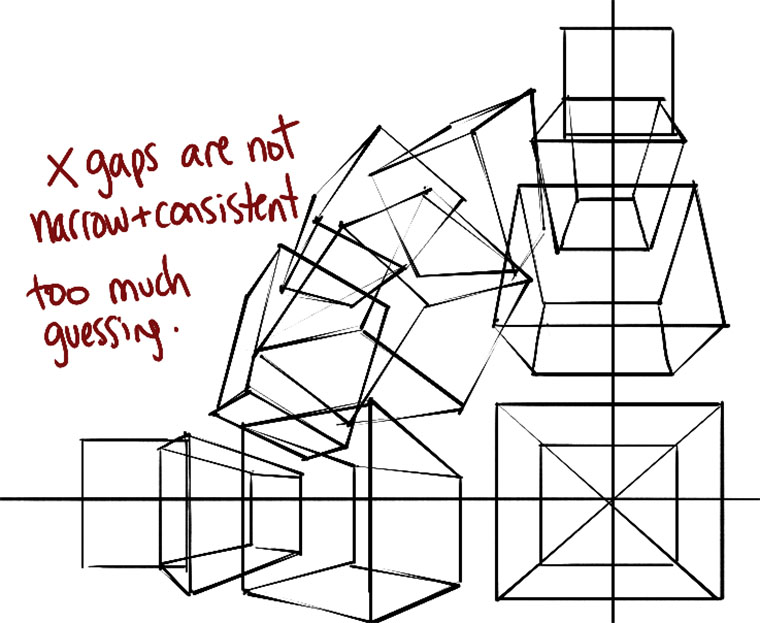 X gaps are not
narrow+consistent
too much
guessing.